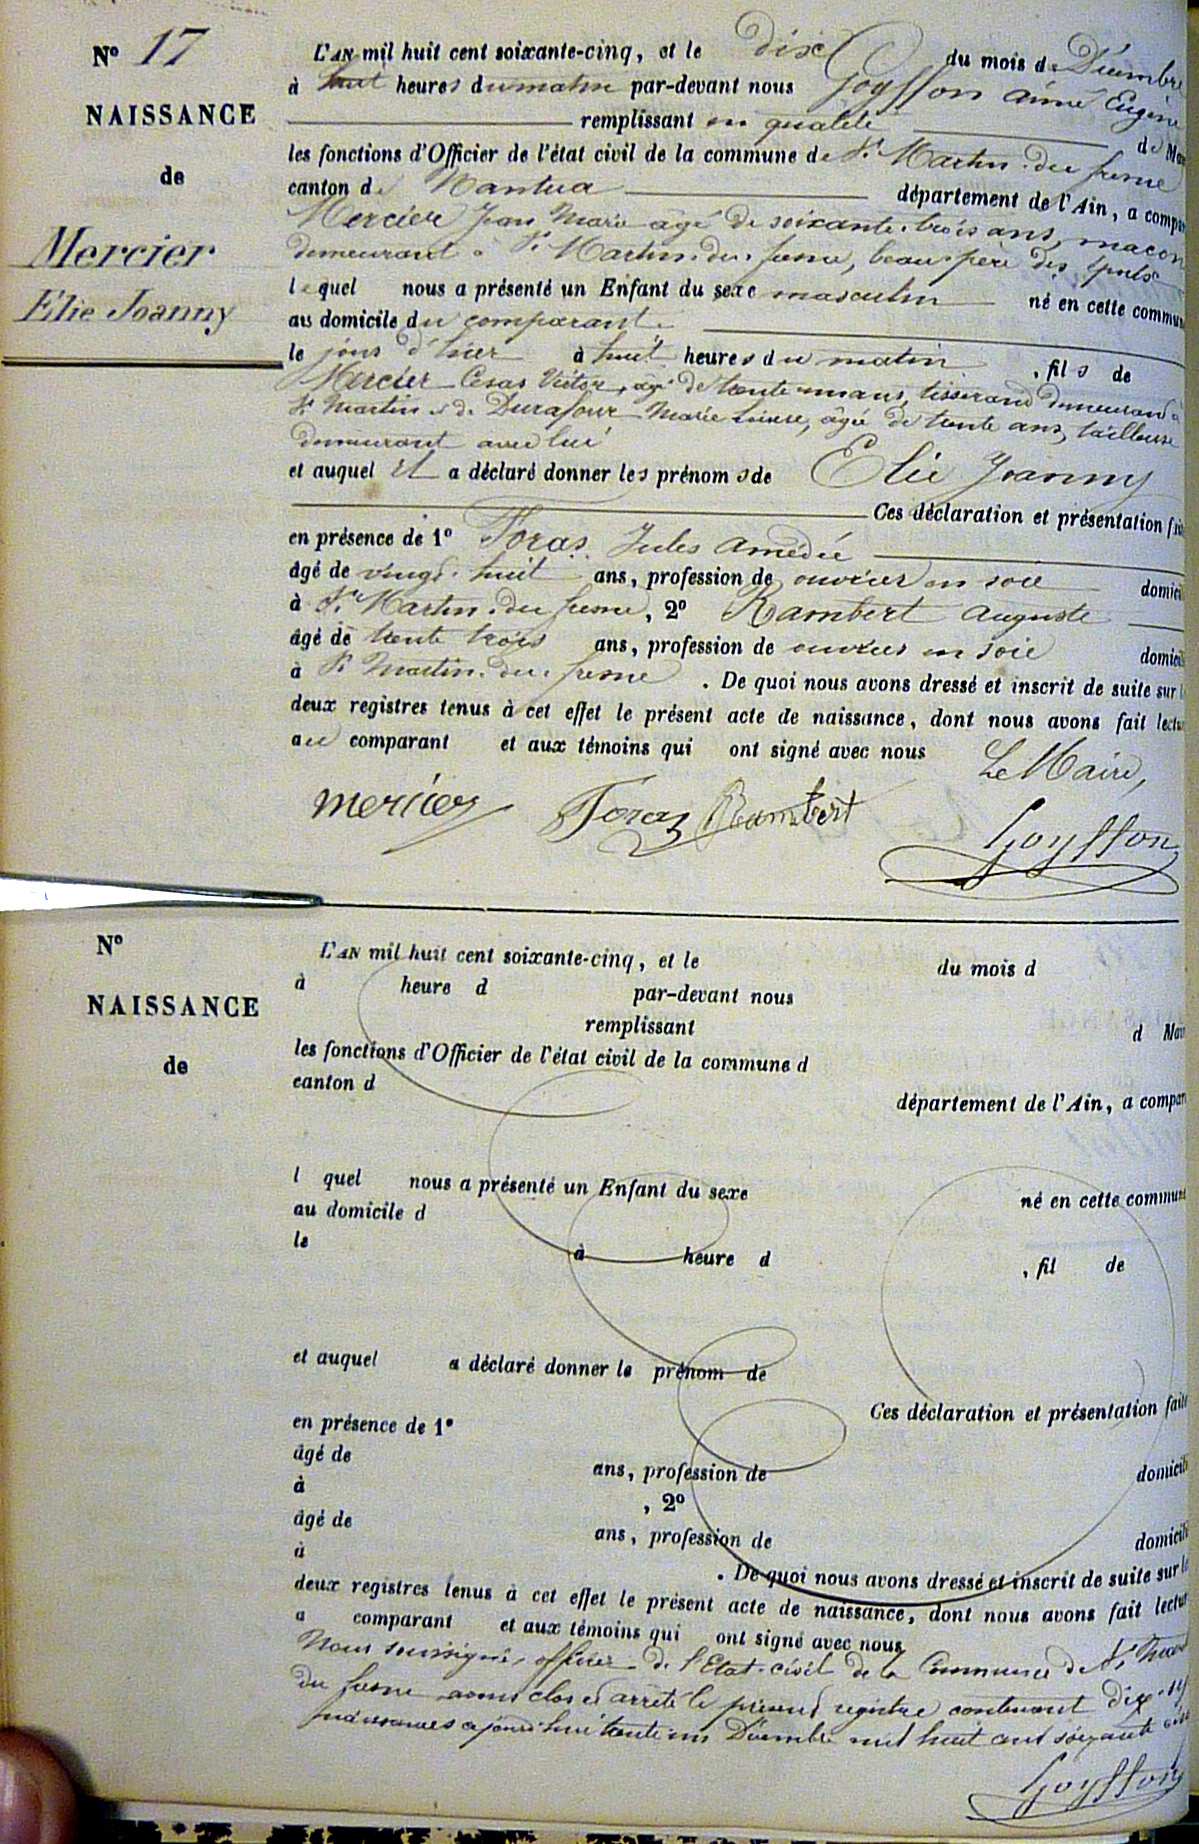 N° 17
NAISSANCE
de
Mercier
Elie Joanny
L'AN mil huit cent soixante-cinq, et le dix du mois de Décembre
à huit heures du matin par-devant nous Goyffon aimé Eugène
remplissant en qualité de Mai
les fonctions d'Officier de l'état civil de la commune de St Martin-du-fresne
canton de Nantua département de l'Ain, a compar
Mercier Jean Marie agé de soixante-trois ans, maçon
demeurant à St Martin-du-fresne, beau-père des époux
lequel nous a présenté un Enfant du sexe masculin né en cette commun
au domicile du comparant
le jour d'hier à huit heures du matin, fils de
Mercier Cesar Victor, agé de trente un ans, tisserand demeurant à
St Martin et de Durafour Marie Louise, âgée de trente ans, tailleuse
demeurant avec lui
et auquel il a déclaré donner les prénoms de Elie Joanny
Ces déclaration et présentation fai
en présence de 1° Foras Jules Amédée
âgé de vingt-huit ans, profession de ouvrier en soie domicil
à St Martin-du-fresne, 2° Rambert Auguste
âgé de trente trois ans, profession de ouvrier en soie domicil
à St Martin-du-fresne. De quoi nous avons dressé et inscrit de suite sur l
deux registres tenus à cet effet le présent acte de naissance, dont nous avons fait lectur
au comparant et aux témoins qui ont signé avec nous
Le Maire,
mercier Foras Rambert Goyffon
N°
NAISSANCE
de
L'AN mil huit cent soixante-cinq, et le du mois d
à heure d par-devant nous
remplissant d Mai
les fonctions d'Officier de l'état civil de la commune d
canton d département de l'Ain, a compar
l quel nous a présenté un Enfant du sexe né en cette commun
au domicile d
le à heure d , fil de
et auquel a déclaré donner le prénom de
Ces déclaration et présentation faite
en présence de 1°
âgé de ans, profession de domicili
à , 2°
âgé de ans, profession de domicili
à . De quoi nous avons dressé et inscrit de suite sur le
deux registres tenus à cet effet le présent acte de naissance, dont nous avons fait lectur
a comparant et aux témoins qui ont signé avec nous
Nous soussigné, officier de l'Etat-civil de la Commune de St Mart
du fresne avons clos et arrêté le présent registre contenant dix-sept
naissances aujourd'hui trente un Décembre mil huit cent soixante cinq
Goyffon